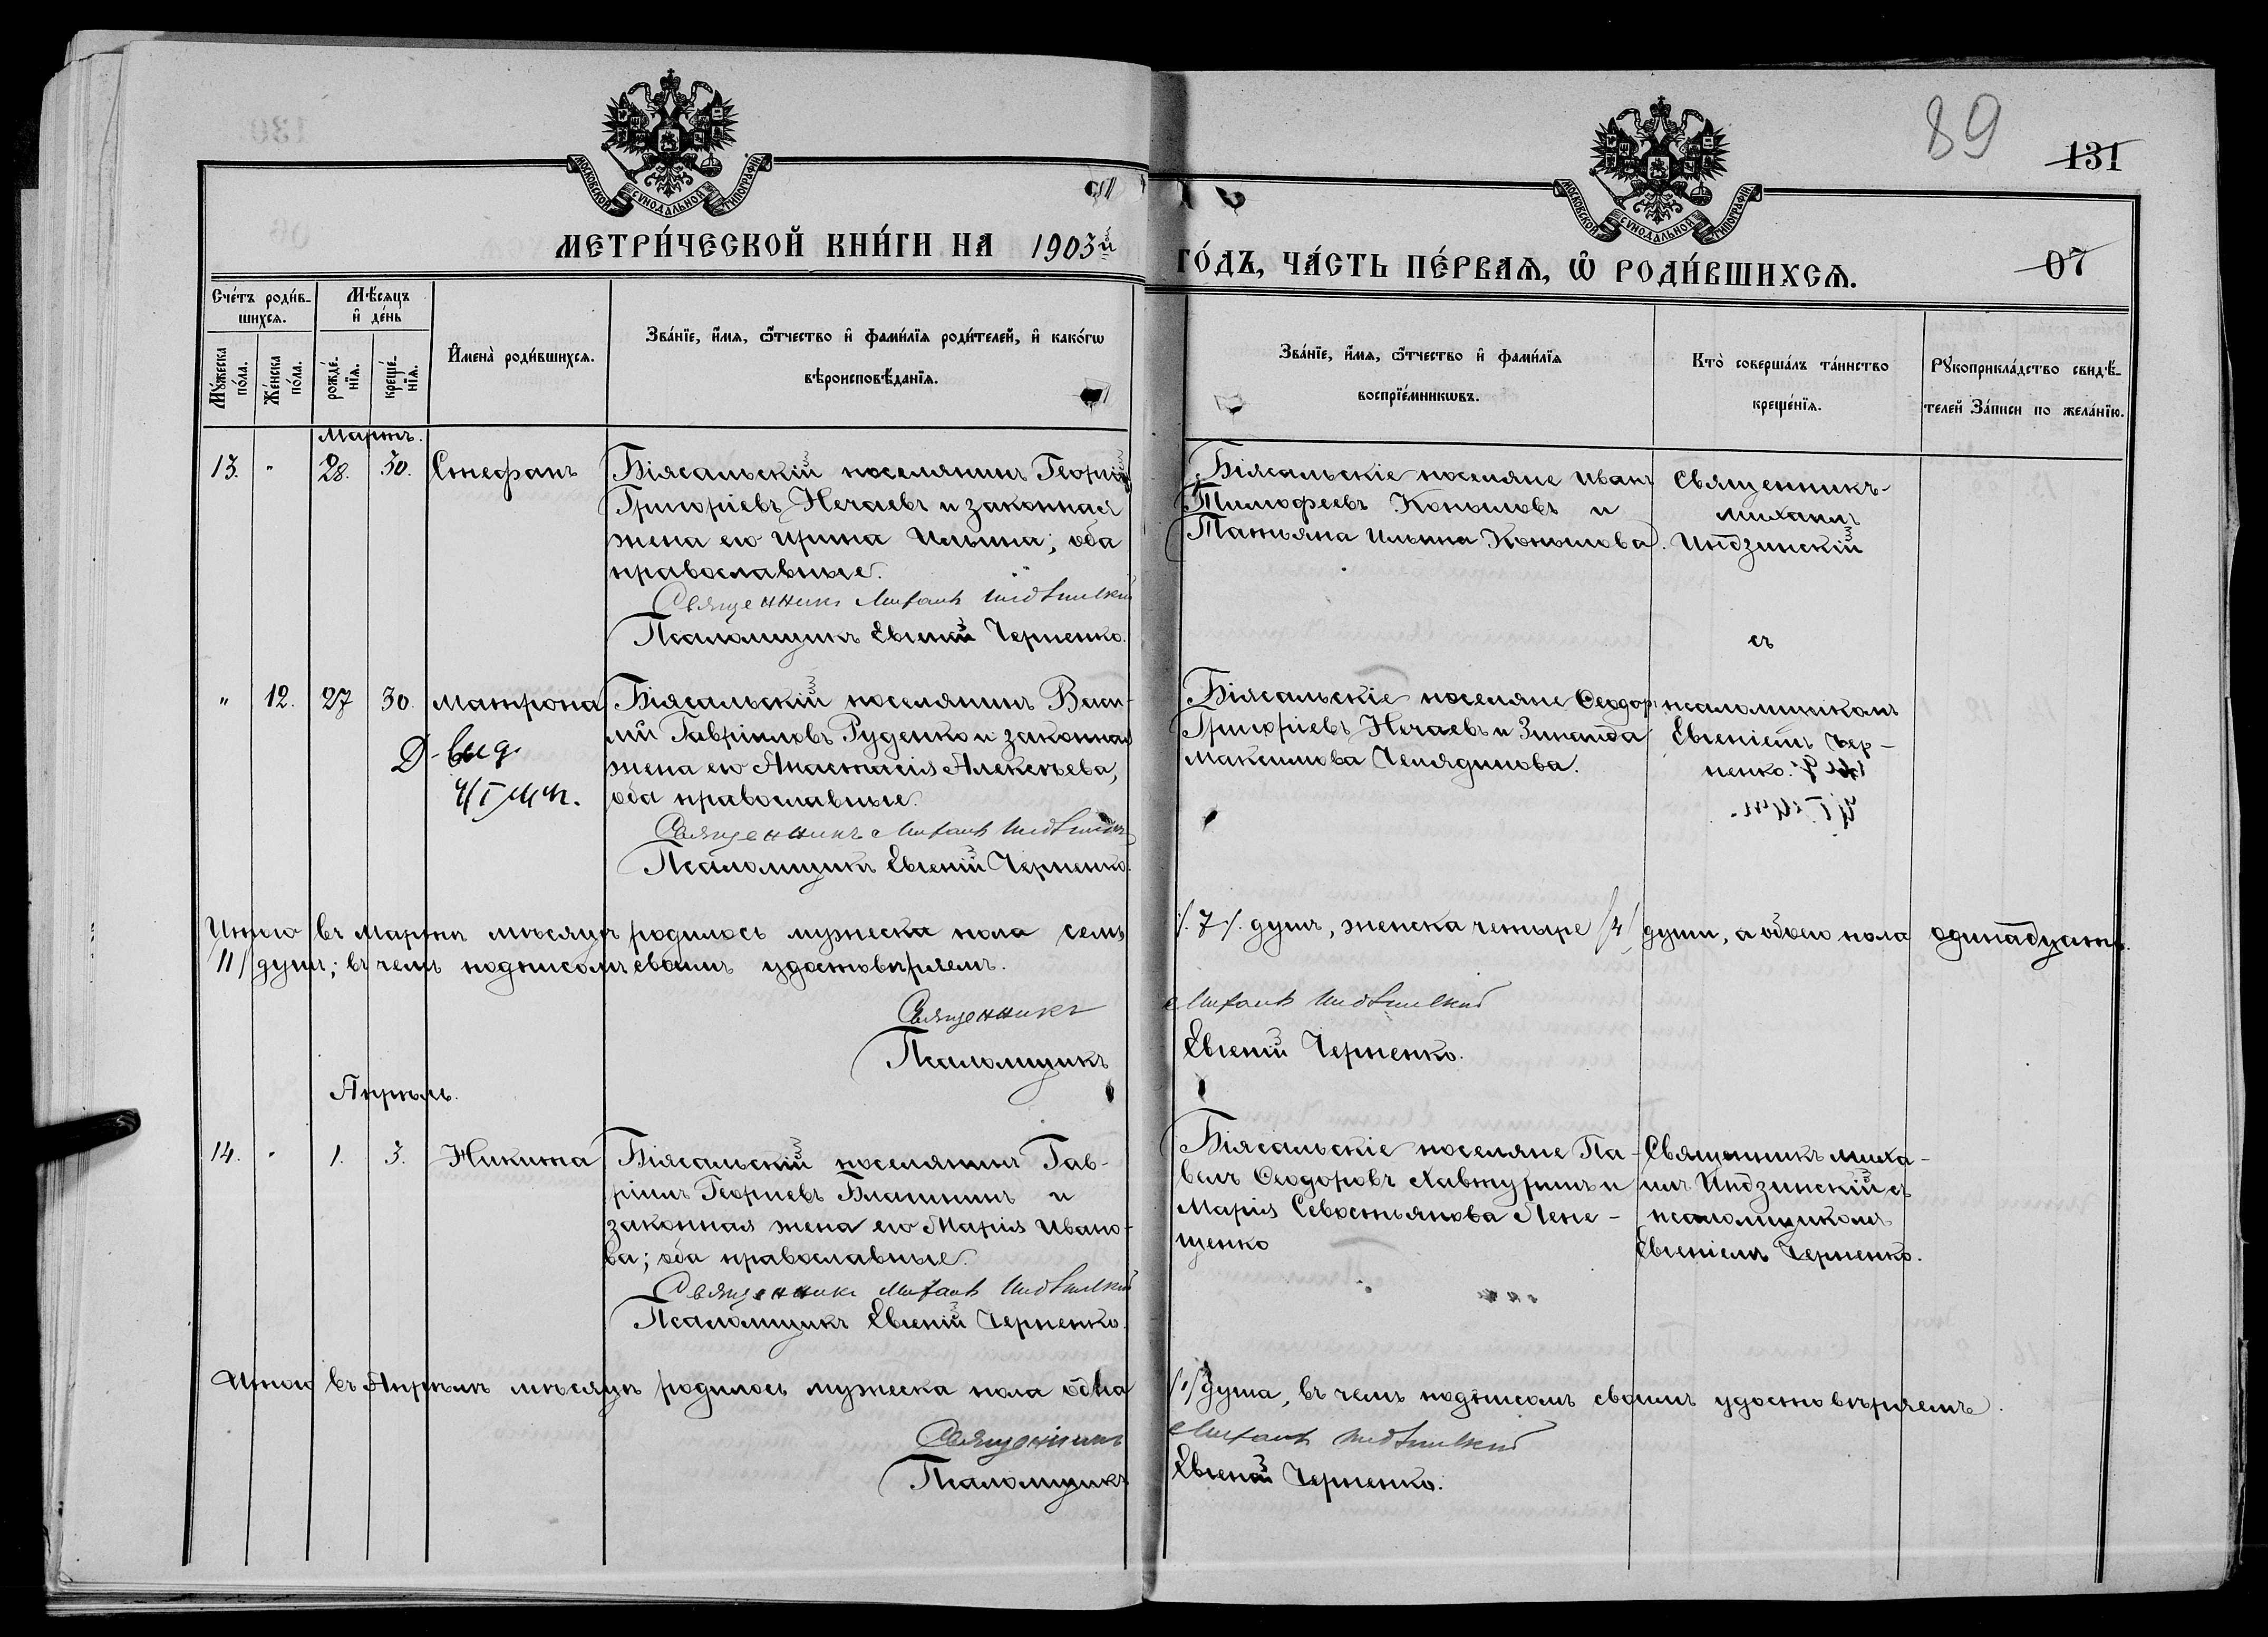 89
131
МОСКОВСКОЙ СѴНОДАЛЬНОЙ ТИПОГРАФІИ
МОСКОВСКОЙ СѴНОДАЛЬНОЙ ТИПОГРАФІИ
МЕТРИ́ЧЕСКОЙ КНИ́ГИ НА 1903й ГО́ДЪ, ЧА́СТЬ ПЕ́РВАѦ, Ѡ҃ РОДИ́ВШИХСѦ.
07
Сче́тъ роди́в-
шихсѧ.
Мѣ́сѧцъ
и҆ де́нь
Мꙋ́жеска
по́ла.
Же́нска
по́ла.
рожде́-
нїѧ.
креще́-
нїѧ.
И҆мена̀ роди́вшихсѧ.
Зва́нїе, и҆́мѧ, ѻ҆́тчество и҆ фами́лїѧ роди́телей, и҆ како́гѡ
вѣроисповѣ́данїѧ.
Зва́нїе, и҆́мѧ, ѻ҆́тчество и҆ фами́лїѧ
воспрїе́мникѡвъ.
Кто̀ соверша́лъ та́инство
креще́нїѧ.
Рꙋкоприкла́дство свидѣ́-
телей За́писи по жела́нїю.
Мартъ.
13. " 28. 30. Стефанъ
Біясальскій поселянинъ Георгій
Григоріевъ Нечаевъ и законная
жена его Ирина Ильина; оба
православные.
Священникъ Михаилъ Индзинскій
Псаломщикъ Евгеній Черненко.
Біясальскіе поселяне Иванъ
Тимофеевъ Копыловъ и
Татьяна Ильина Копылова.
Священникъ
Михаилъ
Индзинскій
съ
" 12. 27 30. Матрона
Д. выд.
Біясальскій поселянинъ Васи-
лій Гавріиловъ Руденко и законная
жена его Анастасія Алексѣева,
оба православные.
Священникъ Михаилъ Индзинскій
Псаломщикъ Евгеній Черненко.
Біясальскіе поселяне Ѳеодоръ
Григоріевъ Нечаевъ и Зинаида
Максимова Челядинова.
псаломщикомъ
Евгеніемъ Чер-
ненко.
Итого въ Мартѣ мѣсяцѣ родилось мужеска пола семь /.7/. душъ, женска четыре /4/ души, а обоего пола одинадцать
/11/ душъ; въ чемъ подписомъ своимъ удостовѣряемъ.
Священникъ Михаилъ Индзинскій
Псаломщикъ Евгеній Черненко.
Апрѣль.
14. " 1. 3. Никита
Біясальскій поселянинъ Гав-
ріилъ Георгіевъ Блашнинъ и
законная жена его Марія Ивано-
ва; оба православные.
Священникъ Михаилъ Индзинскій
Псаломщикъ Евгеній Черненко.
Біясальскіе поселяне Па-
велъ Ѳеодоровъ Хавжуринъ и
Марія Севостьянова Лепе-
щенко
Священникъ Миха-
илъ Индзинскій съ
псаломщикомъ
Евгеніемъ Черненко.
Итого въ Апрѣлѣ мѣсяцѣ родилось мужеска пола одна /1/ душа, въ чемъ подписомъ своимъ удостовѣряемъ.
Священникъ Михаилъ Индзинскій
Псаломщикъ Евгеній Черненко.